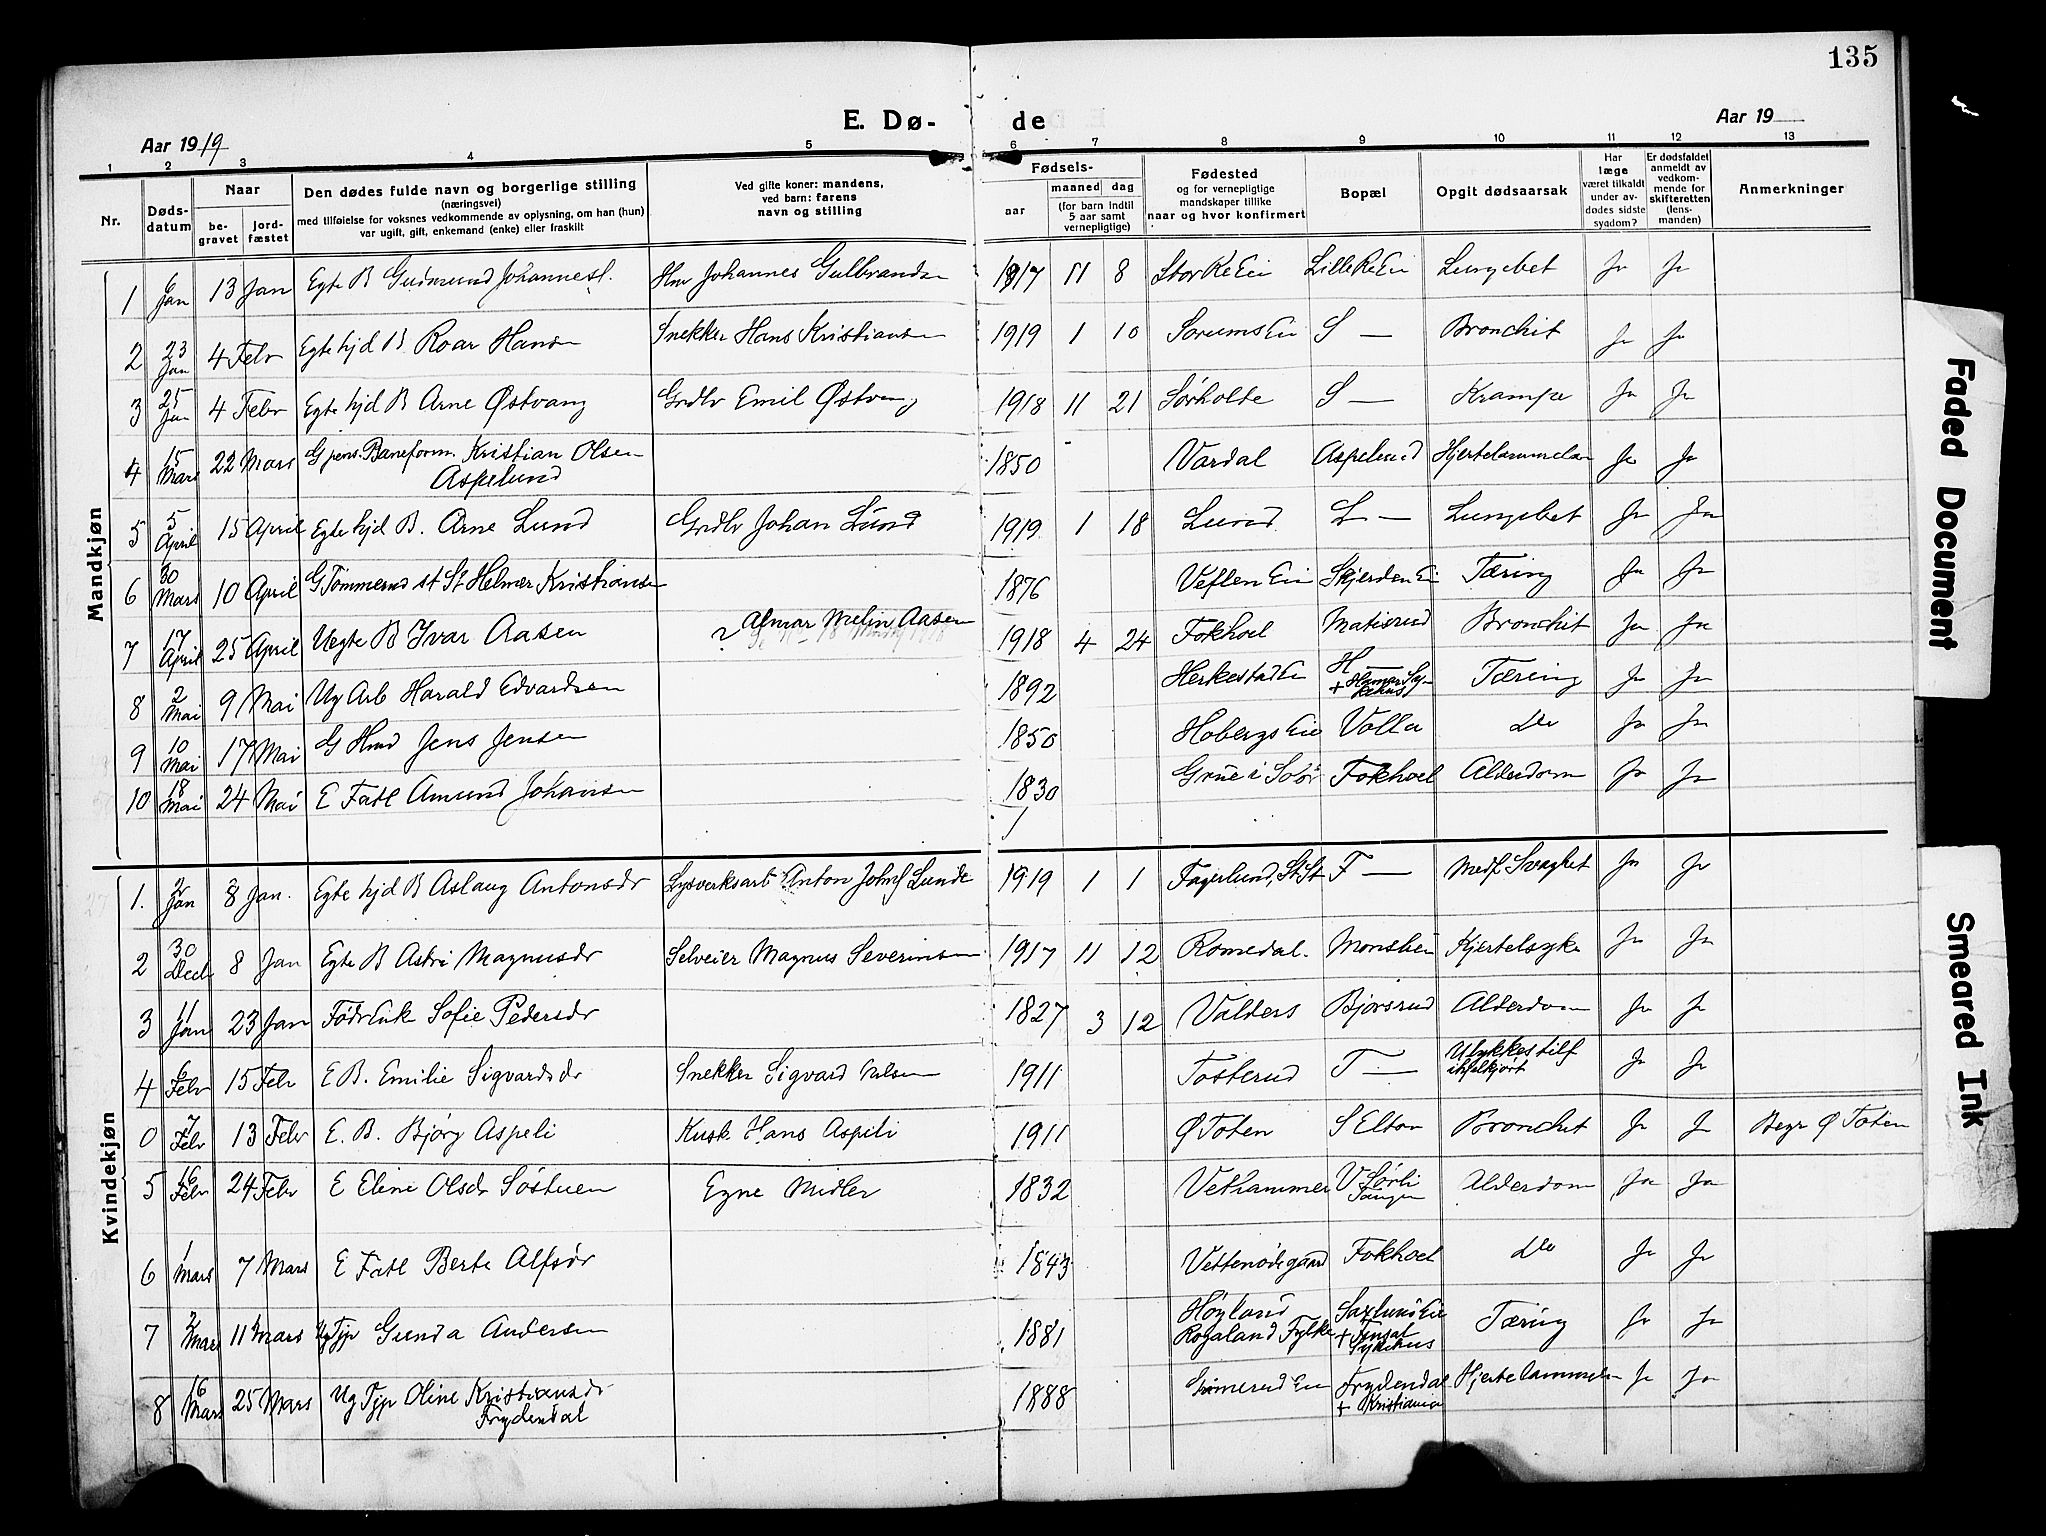 135
E. Dø- de
Aar 1919
Aar 19
1 2 3 4 5 6 7 8 9 10 11 12 13
Nr.
Døds-datum
Naar
be-gravet
jord-fæstet
Den dødes fulde navn og borgerlige stilling
(næringsvei)
med tilføielse for voksnes vedkommende av oplysning, om han (hun)
var ugift, gift, enkemand (enke) eller fraskilt
Ved gifte koner: mandens,
ved barn: farens
navn og stilling
Fødsels-
aar
maaned
dag
(for barn indtil
5 aar samt
vernepligtige)
Fødested
og for vernepligtige
mandskaper tillike
naar og hvor konfirmert
Bopæl
Opgit dødsaarsak
Har
læge
været tilkaldt
under av-
dødes sidste
sygdom?
Er dødsfaldet
anmeldt av
vedkom-
mende for
skifteretten
(lens-
manden)
Anmerkninger
Mandkjøn
1 6 Jan 13 Jan Egte B Gudmund Johanness. Hmd Johannes Gulbrandsen 1917 11 8 Stor Re Eie Lille Re Eie Lungebet Ja Ja
2 23 Jan 4 Febr Egte hjd B Roar Hansen Snekker Hans Kristiansen 1919 1 10 Sorums Eie S — Bronchit Ja Ja
3 25 Jan 4 Febr Egte hjd B Arne Østvang Grdbr Emil Østvang 1918 11 21 Sørholte S — Krampe Ja Ja
4 15 Mars 22 Mars G pens. Baneform. Kristian Olsen
Aspelund 1850 Vardal Aspelund Hjertelammelse Ja Ja
5 5 April 15 April Egte hjd B. Arne Lund Grdbr Johan Lund 1919 1 18 Lund L — Lungebet Ja Ja
6 30 Mars 10 April G Tømmermd st St Helmer Kristiansen 1876 Veflen Eie Skjerden Ei Tæring Ja Ja
7 17 April 25 April Uegte B Ivar Aasen ? Almar Melin Aasen 1918 4 24 Fokhoel Matisrud Bronchit Ja Ja
8 2 Mai 9 Mai Ug Arb Harald Edvardsen 1892 Herkestad Ei H —
+ Hamar Sy-
kehus Tæring Ja Ja
9 10 Mai 17 Mai G Hmd Jens Jensen 1850 Hobergs Eie Volla Do Ja Ja
10 18 Mai 24 Mai E Fatl Amund Johansen 1830 Grue i Solør Fokhoel Alderdom Ja Ja
Kvindekjøn
1. 2 Jan 8 Jan. Egte hjd B Aslaug Antonsdr Lysverksarb Anton Johns Lunde 1919 1 1 Fagerlund, St St F — Medf. Svaghet Ja Ja
2 30 Decbr 8 Jan Egte B Astri Magnusdr Selveier Magnus Severinsen 1917 11 12 Romedal. Monsbin Kjertelsyke Ja Ja
3 11 Jan 23 Jan Fødr Enk Sofie Pedersdr 1827 3 12 Valders Bjørsrud Alderdom Ja Ja
4 6 Febr 15 Febr E B. Emilie Sigvardsdr Snekker Sigvard Nilsen 1911 Tosterud T — Ulykkestilf
ihjelkjørt Ja Ja
0 7 Febr 13 Febr E. B. Bjørg Aspeli Kusk Hans Aspeli 1911 Ø Toten S Elton Bronchit Ja Ja Begr Ø Toten
5 16 Febr 24 Febr E Eline Olsdr Søstuen Egne Midler 1832 Vethammer V Sørli Alderdom Ja Ja
6 1 Mars 7 Mars E Fatl Berte Alfsdr 1843 Vestenødegaard Fokhoel Do Ja Ja
7 2 Mars 11 Mars Ug Tjp Gunda Andersen 1881 Høyland
Rogaland Fylke Saxlund Eie
+ Tynset
Sykehus Tæring Ja Ja
8 16 Mars 25 Mars Ug Tjp Oline Kristiansdr
Frydendal 1888 Frydendal
+ Kristiania Hjertelammelse Ja Ja
Faded Document
Smeared Ink